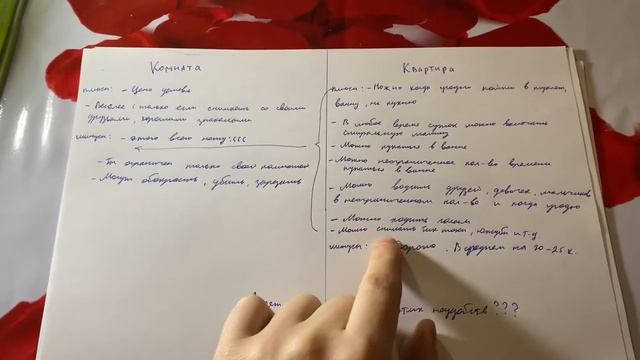 Комната
плюсы: - Цена дешева
- Веселее (только если снимаешь со своими
друзьями, хорошими знакомыми
минусы: - этого всего нету:(((
- Ты ограничен только своей комнатой
- Могут обокрасть, убить, зарезать
Квартира
плюсы: - Можно когда угодно пойти в туалет,
ванну, на кухню
- В любое время суток можно включать
стиральную машину
- Можно купаться в ванне
- Можно неограниченное кол-во времени
купаться в ванне
- Можно водить друзей, девочек, мальчиков
в неограниченном кол-во и когда угодно
- Можно ходить голым
- Можно снимать тик токи, ютубы и т.д
минусы: В среднем на 20-25 к.
этих неудобств???